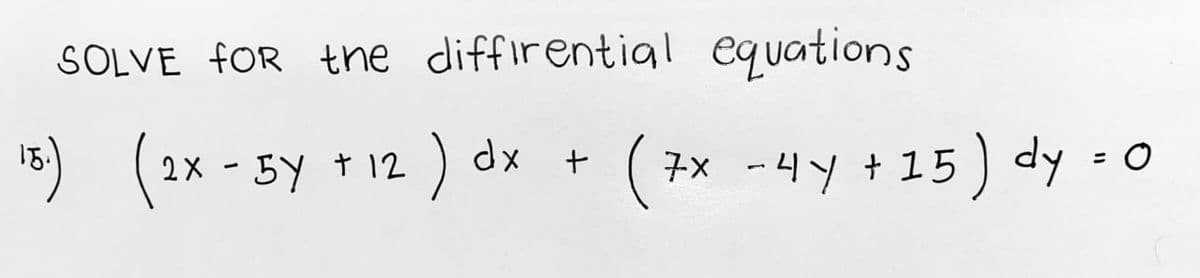 SOLVE fOR the diffirential equations
15.) (2x - 5y + 12) dx + (7x - 4y + 15) dy = 0